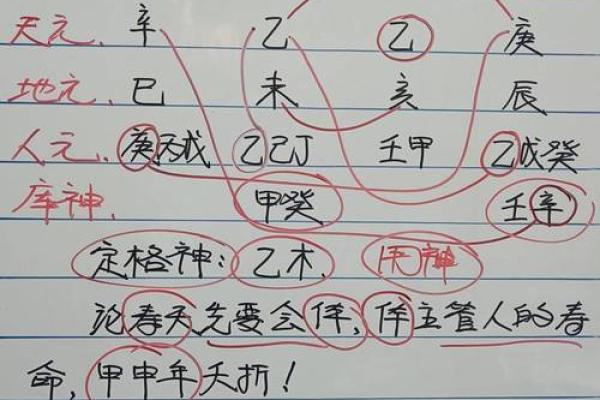 天元、辛 乙 乙 庚
地元、巳 未 亥 辰
人元、庚丙戊 乙己丁 壬甲 乙戊癸
库神、 甲癸 壬辛
定格神:乙木、 用神
论寿夭先要会俸,俸主管人的寿
命,甲申年夭折!